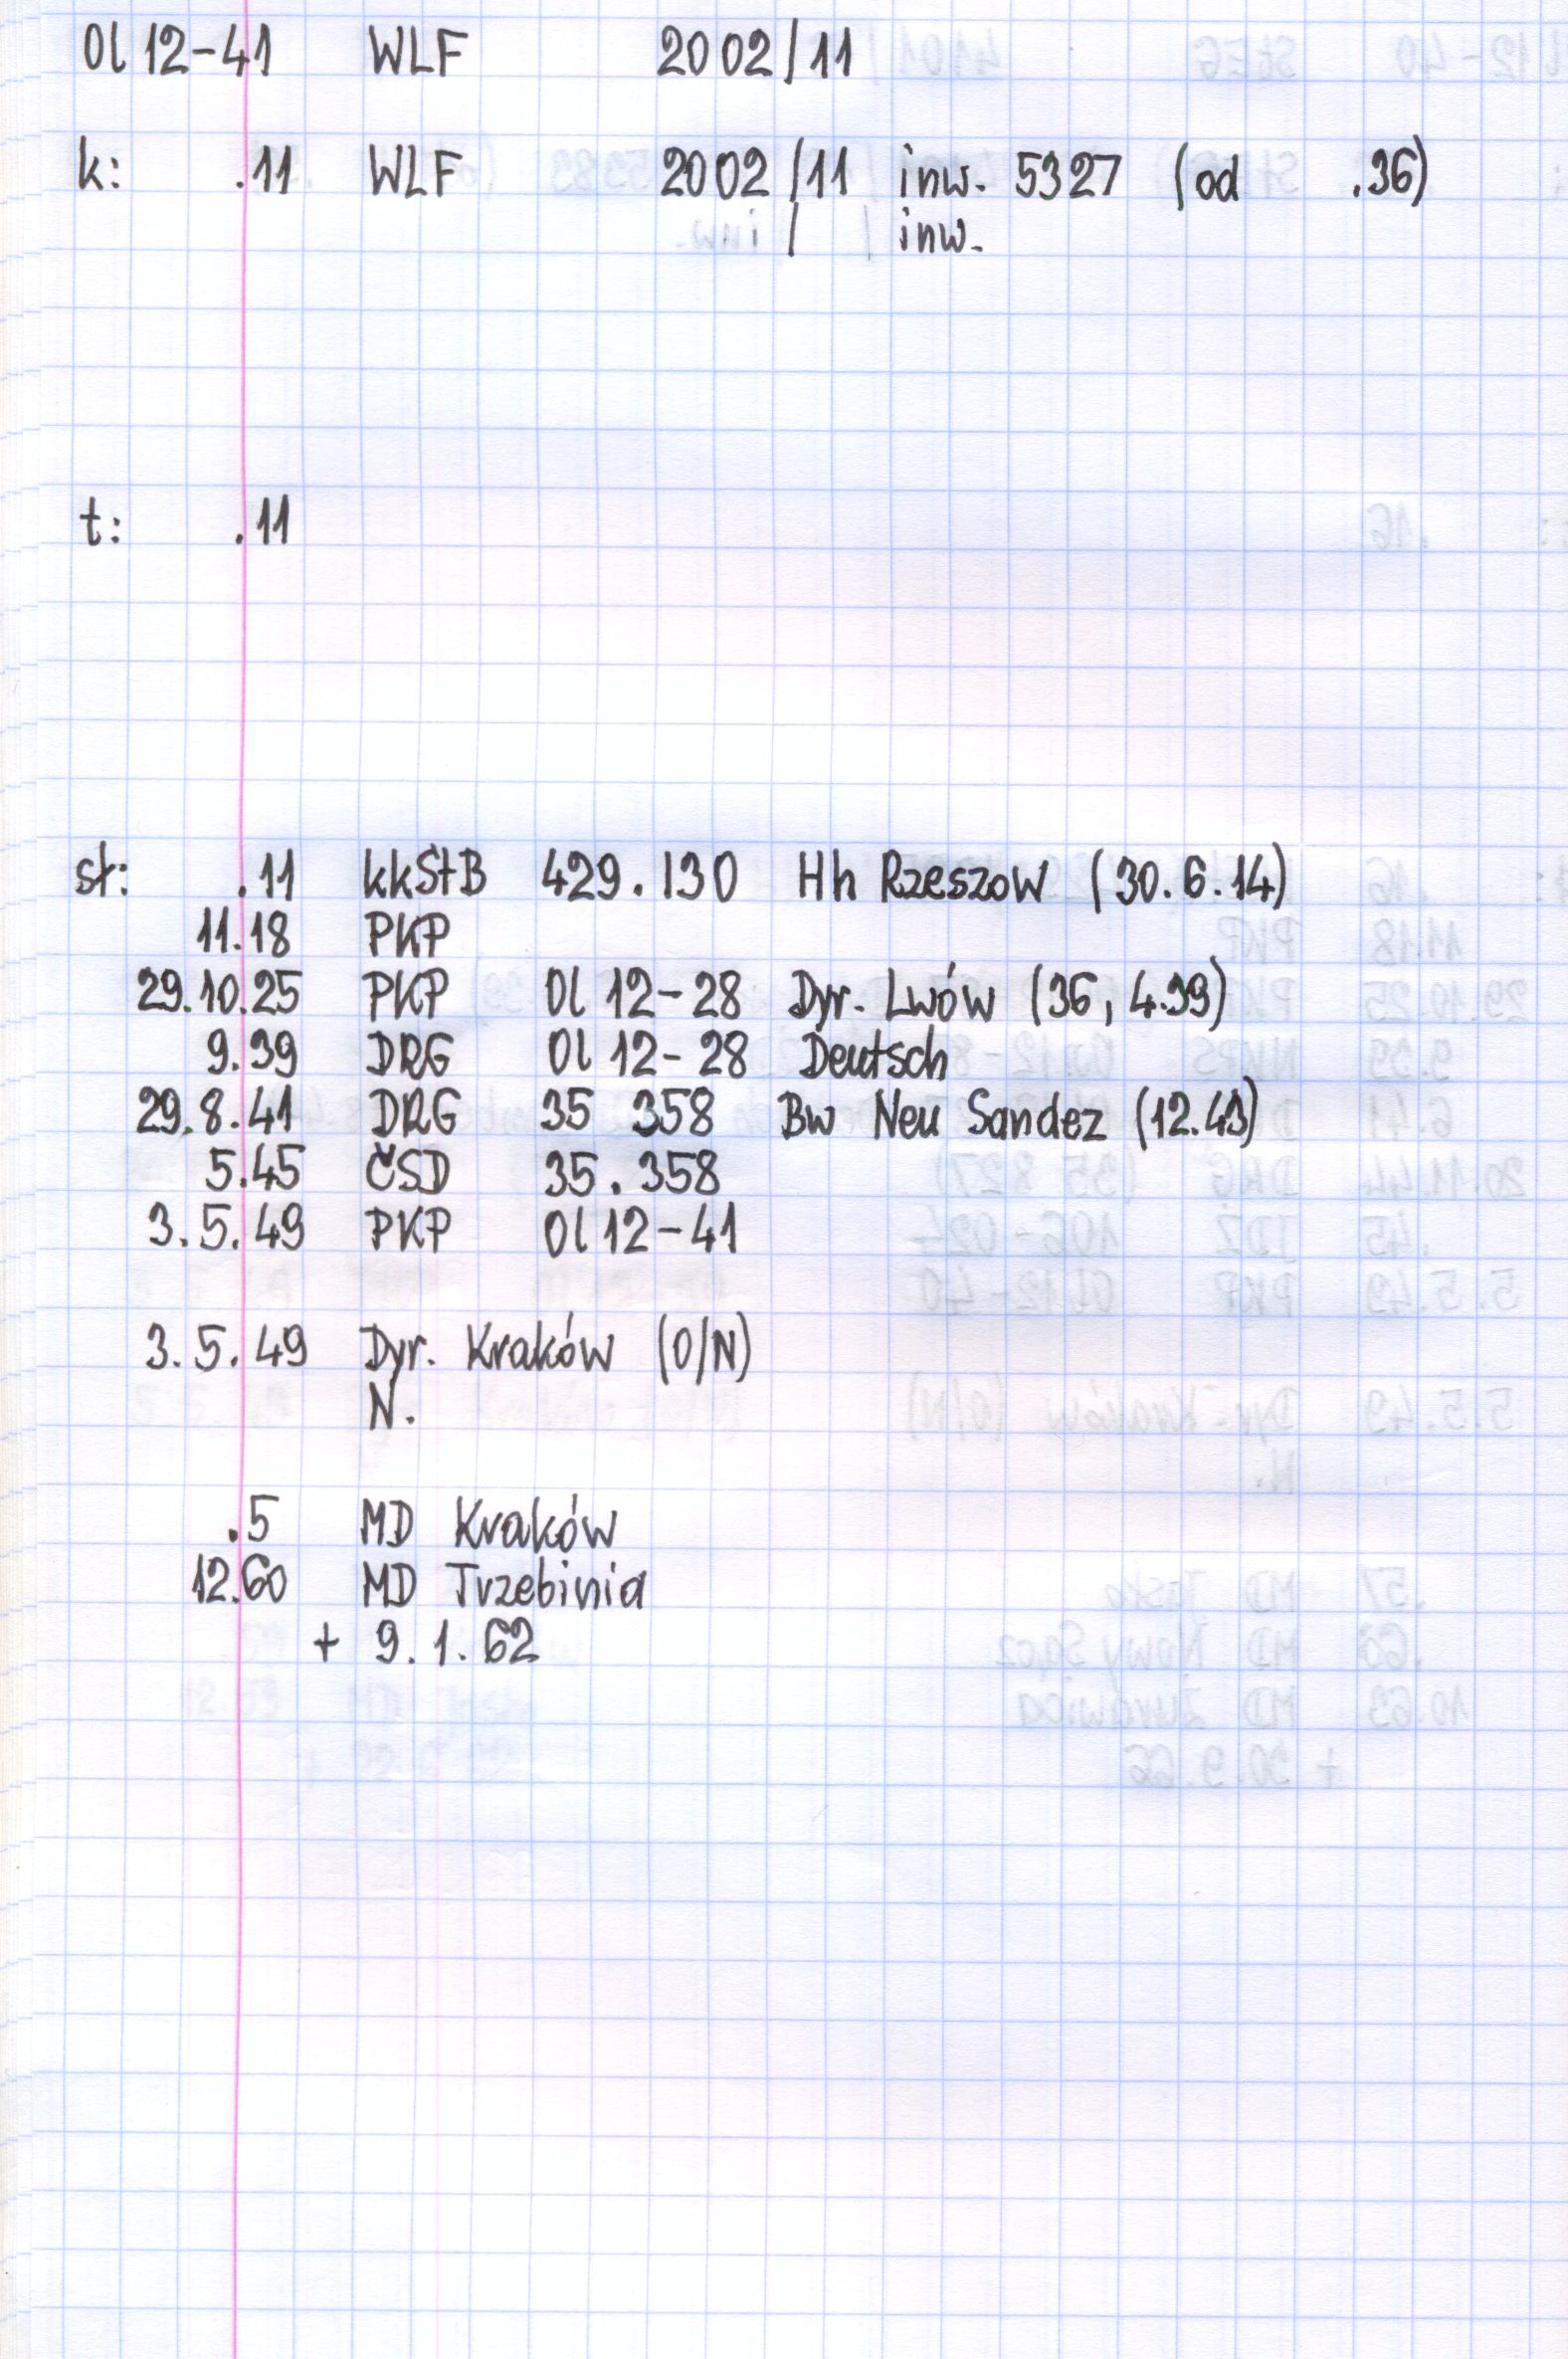 Ol 12-41 WLF 2002/11
k: .11 WLF 2002/11 inw. 5327 (od .36)
/ inw.
t: .11
st: .11 kkStB 429.130 Hh Rzeszow (30.6.14)
11.18 PKP
29.10.25 PKP Ol 12-28 Dyr. Lwów (36, 4.39)
9.39 DRG Ol 12-28 Deutsch
29.8.41 DRG 35 358 Bw Neu Sandez (12.43)
5.45 ČSD 35.358
3.5.49 PKP Ol 12-41
3.5.49 Dyr. Kraków (O/N)
N.
.5 MD Kraków
12.60 MD Trzebinia
+ 9.1.62